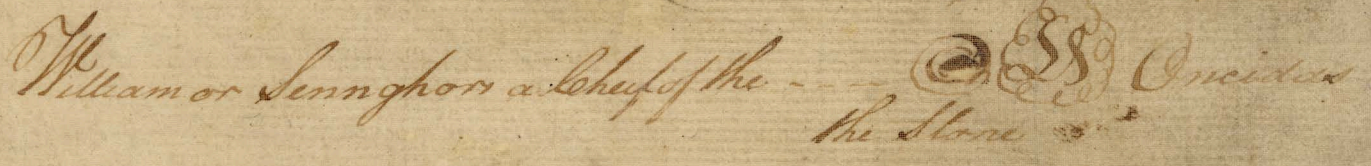 William or Sennghors a Chief of the - - - - W Oneidas
the Stone